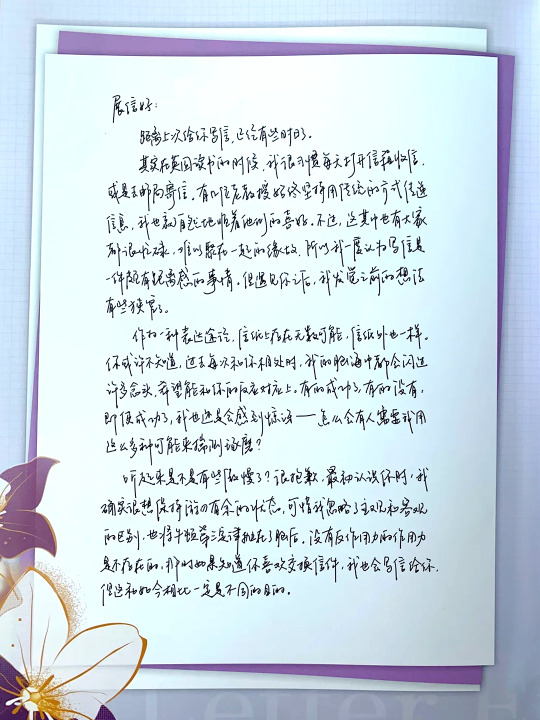 展信好：
距离上次给你写信，已经有些时日了。
其实在英国读书的时候，我很习惯每天打开信箱收信，
或是去邮局寄信。有几位老教授始终坚持用传统的方式传递
信息，我也就自然地顺着他们的喜好。不过，这其中也有大家
都很忙碌，难以聚在一起的缘故，所以我一度认为写信是
一件颇有距离感的事情。但遇见你之后，我发觉之前的想法
有些狭窄了。
作为一种表达途径，信纸上存在无数可能，信纸外也一样。
你或许不知道，过去每次和你相处时，我的脑海中都会闪过
许多念头，希望能和你的反应对应上。有的成功了，有的没有，
即便成功了，我也还是会感到惊讶——怎么会有人需要我用
这么多种可能来揣测琢磨？
听起来是不是有些傲慢了？很抱歉，最初认识你时，我
确实很想保持游刃有余的状态，可惜我忽略了主观和客观
的区别，也将牛顿第三定律抛在了脑后。没有反作用力的作用力
是不存在的，那时如果知道你喜欢交换信件，我也会写信给你，
但这和如今相比一定是不同的目的。
Letter